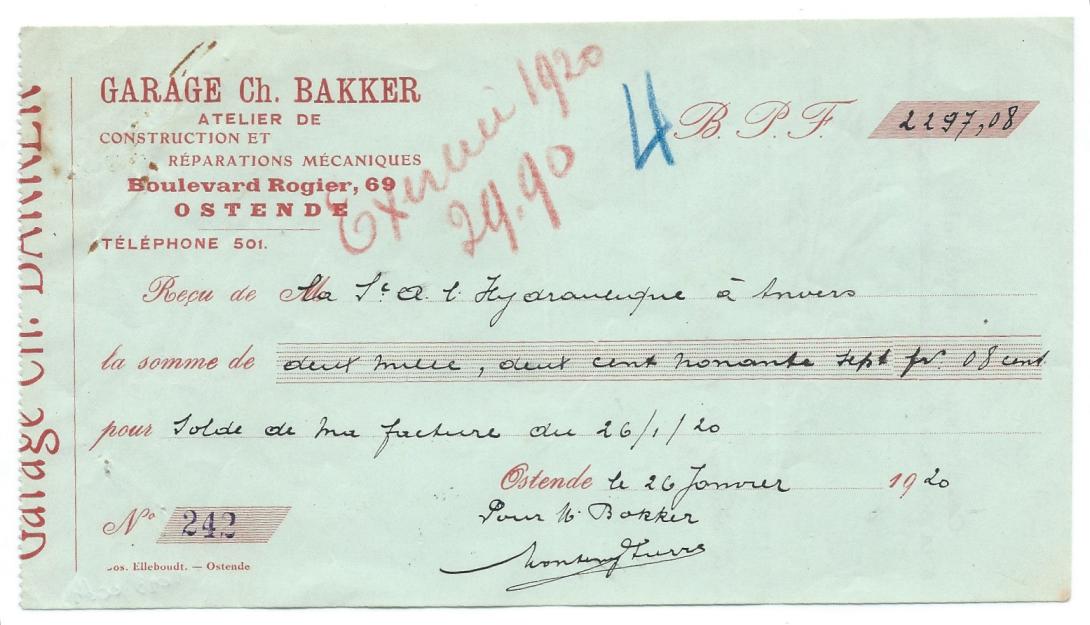 GARAGE Ch. BAKKER
ATELIER DE
CONSTRUCTION ET
RÉPARATIONS MÉCANIQUES
Boulevard Rogier, 69
OSTENDE
TÉLÉPHONE 501.
Exercice 1920
29.90
4
B. P. F. 2297,08
Reçu de M la Sté A. l'Hydraulique à Anvers
la somme de deux mille, deux cent nonante sept fr. 08 cent
pour Solde de ma facture du 26/1/20
Ostende le 26 Janvier 1920
Pour Mr Bakker
No 242
Jos. Elleboudt. — Ostende
Garage Ch. BAKKER